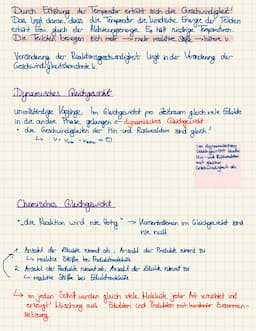 Durch Erhöhung der Temperatur erhöht sich die Geschwindigkeit!
Das liegt daran, dass die Temperatur die kinetische Energie der Teilchen
erhöht
gleich der Aktivierungsenergie. Es hält niedrige
Die Teilchen bewegen sich mehr → mehr reaktive Stöße → höhere v.
Veränderung der Reaktionsgeschwindigkeit liegt in der Veränderung der
Geschwindigkeitskonstante k.
Dynamisches Gleichgewicht
unvollständige Vorgänge. Im Gleichgewicht pro Zeitraum gleich viele Edukte
in die andere Phase gelangen = dynamisches Gleichgewicht
• die Geschwindigkeiten der Hin- und Rückreaktion sind gleich!
↳ v = v - v = 0
Im dynamischen
Gleichgewicht laufen
Hin- und Rückreaktion
mit gleicher
Geschwindigkeit ab.
Chemisches Gleichgewicht
• "die Reaktion wird nie fertig" → Konzentrationen im Gleichgewicht sind
nie null
1. Anzahl der Edukte nimmt ab; Anzahl der Produkte nimmt zu
↳ reaktive Stöße bei Produktmoleküle
2. Anzahl der Produkte nimmt ab; Anzahl der Edukte nimmt zu
↳ reaktive Stöße bei Eduktmoleküle
↳ in jedem Schritt werden gleich viele Moleküle jeder Art vernichtet und
erzeugt! Mischung aus Edukten und Produkten mit konstanter Zusammen-
setzung.